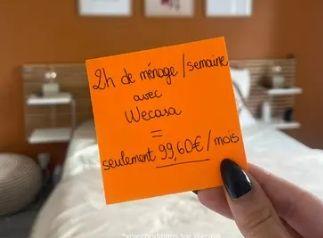 2h de ménage/semaine
avec
Wecasa
=
seulement 99,60€/mois